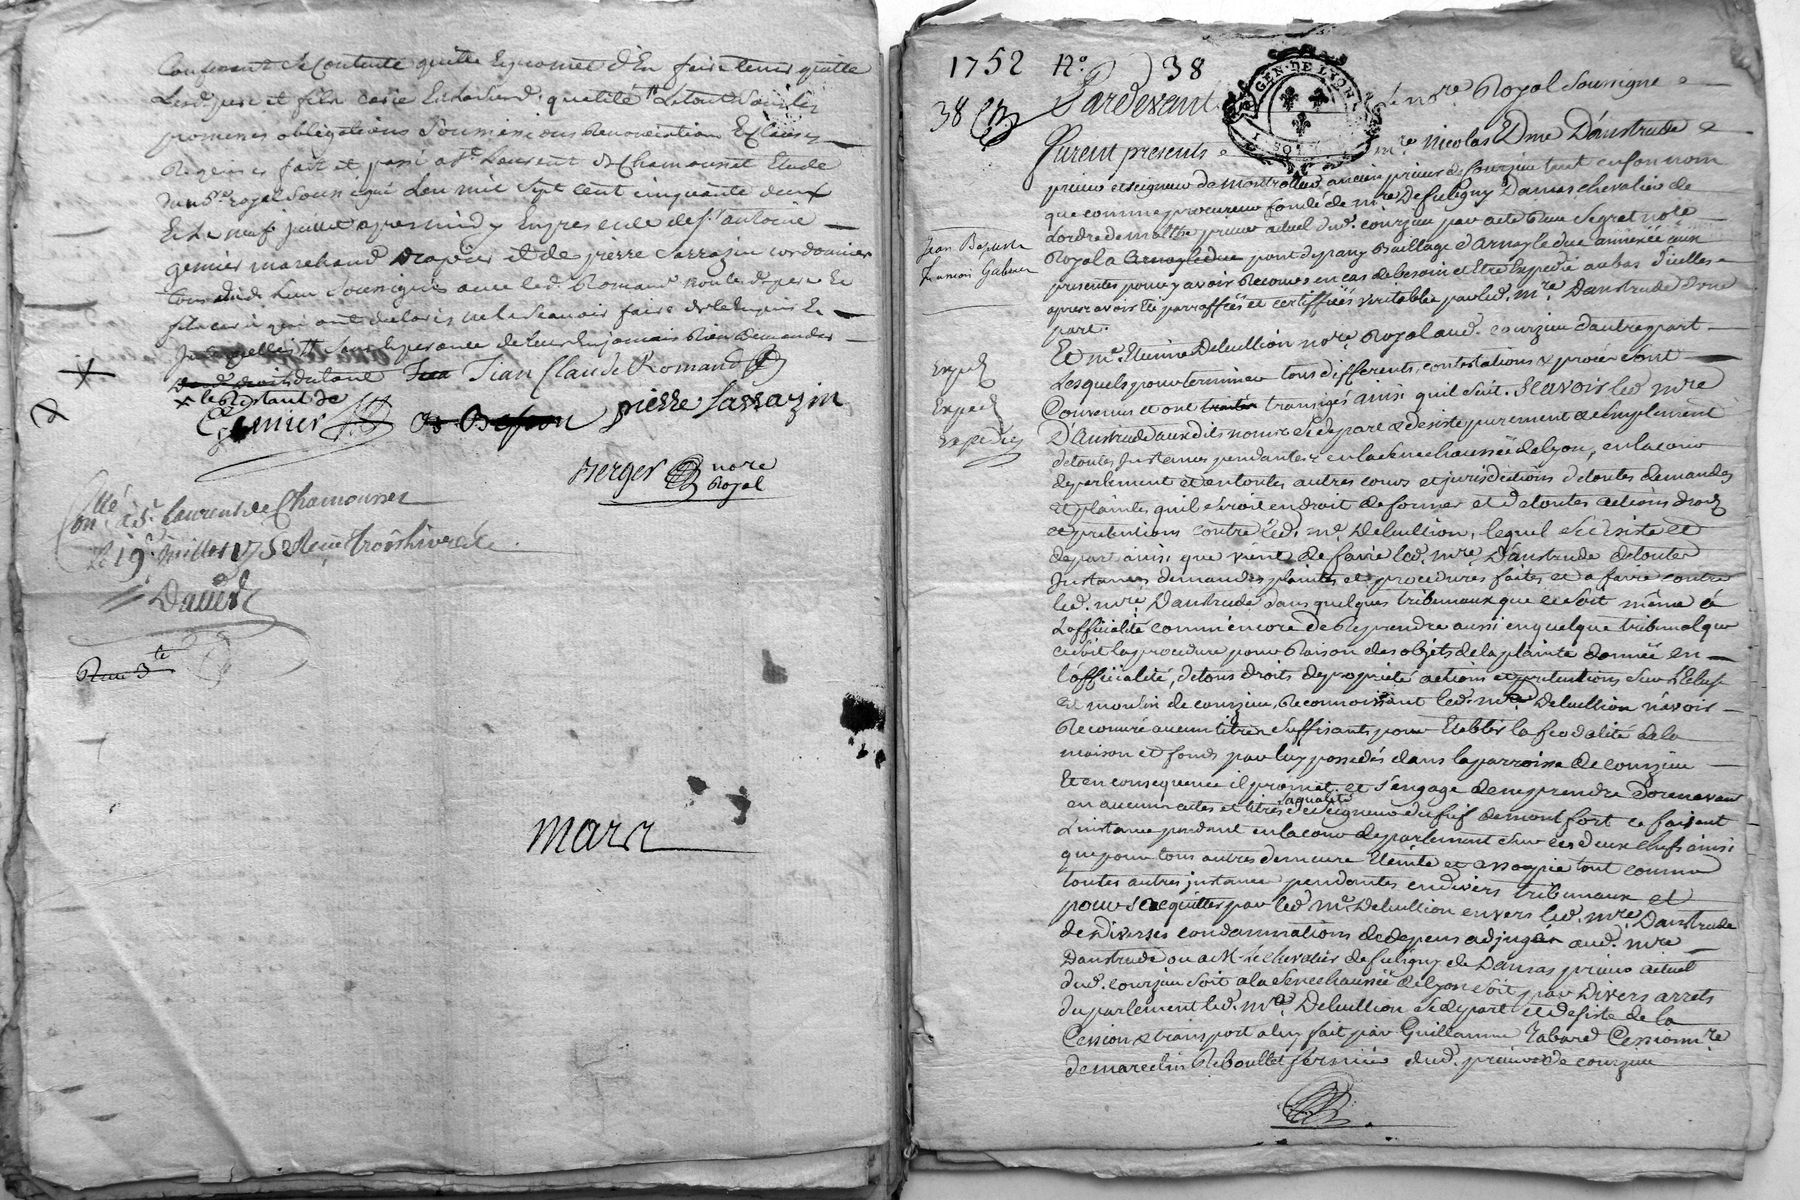 Content de Contente quitte et promet d'En faire tenir quitte
promesses obligations soumissions Renonciation Et clauses
Requises fait et passé a St Laurent de Chamousset Etude
du nore royal soussigné L'an mil sept cent cinquante deux
Et Le neuf juillet apres midy En presence de sr antoine
gemier marchand drapier et de pierre sarrazin cordonnier
tous dud. Lieu soussignés avec led. Romand non led. pere Et
fils caris qui ont declaré ne le scavoir faire de ce Enquis Et
Jean Claude Romand
x le Restant de
Gemier
pierre sarrazin
Berger nore
Royal
Contllé à St Laurent de Chamousset
Le 19e Juillet 1752 Reçu trois livres
David
mars
1752 No 38
38
GEN. DE LYON
Pardevant le nore Royal soussigné
furent presents mre Nicolas Edme Danstrude
prieur et seigneur de montrottier ancien prieur de courzieu tant en son nom
que comme procureur fondé de mre de fuligny Damas chevalier de
L'ordre de malthe prieur actuel dud. courzieu par acte devant Segret nore
Royal a Arnay le duc pont depany Bailliage d'arnay le duc annexée aux
presentes pour y avoir Recours en cas de besoin et Etre Expedié au bas d'icelles
apres avoir Eté parraffée et certiffiée veritable par led. mre Danstrude d'une
part.
Jean Baptiste
francois Gabriel
Et me Etienne Delullion nore Royal aud. courzieu d'autre part
Exped
Lesquels pour terminer tous differents, contestations & procès sont
Exped
Convenus et ont traités transigés ainsi quil suit. Scavoir led mre
Expedié
D'Anstrude aux dits noms se depare & desiste purement & simplement
de toutes Instances pendantes en la senechaussée de lyon, en la cour
de parlement et en toutes autres cours et jurisdictions de toutes demandes
et plaintes quil seroit en droit de former et de toutes actions droits
et pretentions contre led. me Delullion, lequel se desiste et
depart ainsi que vient de faire led. mre D'anstrude de toutes
Instances demandes plaintes et procedures faites et a faire contre
led. mre Danstrude dans quelques tribunaux que ce soit même à
L'officialité comm'encore de Reprendre aussi en quelque tribunal que
ce soit la procedure pour Raison des objets de la plainte donnée en
l'officialité, de tous droits de proprieté actions et pretentions sur l'Ecluse
et moulin de courzieu, Reconnoissant led. me Delullion n'avoir
Recouvré aucun titres suffisants pour Etablir la feodalité de la
maison et fonds par luy possedés dans la parroisse de courzieu
Et en consequence il promet et s'engage de ne prendre dorenavant
en aucuns actes et titres la qualité de seigneur du fief de montfort ce faisant
L'instance pendant en la cour de parlement sur ces deux chefs ainsi
que pour tous autres demeure Eteinte et assoupie tout comme
toutes autres instances pendantes en divers tribunaux et
pour s'acquitter par led. me Delullion envers led. mre Danstrude
des diverses condamnations de depens adjugés aud. mre
Danstrude ou a Mr Le chevalier de fuligny de Damas prieur actuel
dud. courzieu soit a la senechaussée de lyon soit par divers arrets
du parlement led. me Delullion se depart et desiste de la
Cession & transport a luy fait par Guillaume Tabard Cessionnre
de marcelin Reboullet fermier dud. prieuré de courzieu